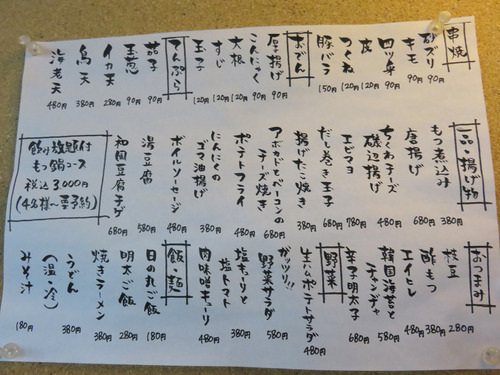 串焼
砂ズリ 90円
キモ 90円
四ツ身 120円
皮 120円
つくね 120円
豚バラ 150円
おでん
厚揚げ 90円
こんにゃく 90円
大根 120円
すじ 120円
玉子 120円
てんぷら
茄子 90円
玉葱 90円
イカ天 280円
鳥天 380円
海老天 480円
一品・揚げ物
もつ煮込み 380円
唐揚げ 680円
ちくわチーズ
磯辺揚げ 480円
エビマヨ 780円
だし巻き玉子 380円
揚げたこ焼き 380円
アボカドとベーコンの
チーズ焼き 680円
ポテトフライ 480円
にんにくの
ゴマ油揚げ 380円
ボイルソーセージ 480円
湯豆腐 580円
和風豆腐チゲ 680円
飲み放題付
もつ鍋コース
税込3000円
(4名様〜要予約)
おつまみ
枝豆 280円
酢もつ 380円
エイヒレ 480円
韓国海苔と
チャンヂャ 580円
辛子明太子 680円
野菜
生ハムポテトサラダ 480円
ガッツリ!!
野菜サラダ 580円
塩キューリと
塩トマト 380円
肉味噌キューリ 480円
飯・麺
日の丸ご飯 180円
明太ご飯 280円
焼きラーメン 380円
うどん
(温・冷) 380円
みそ汁 180円